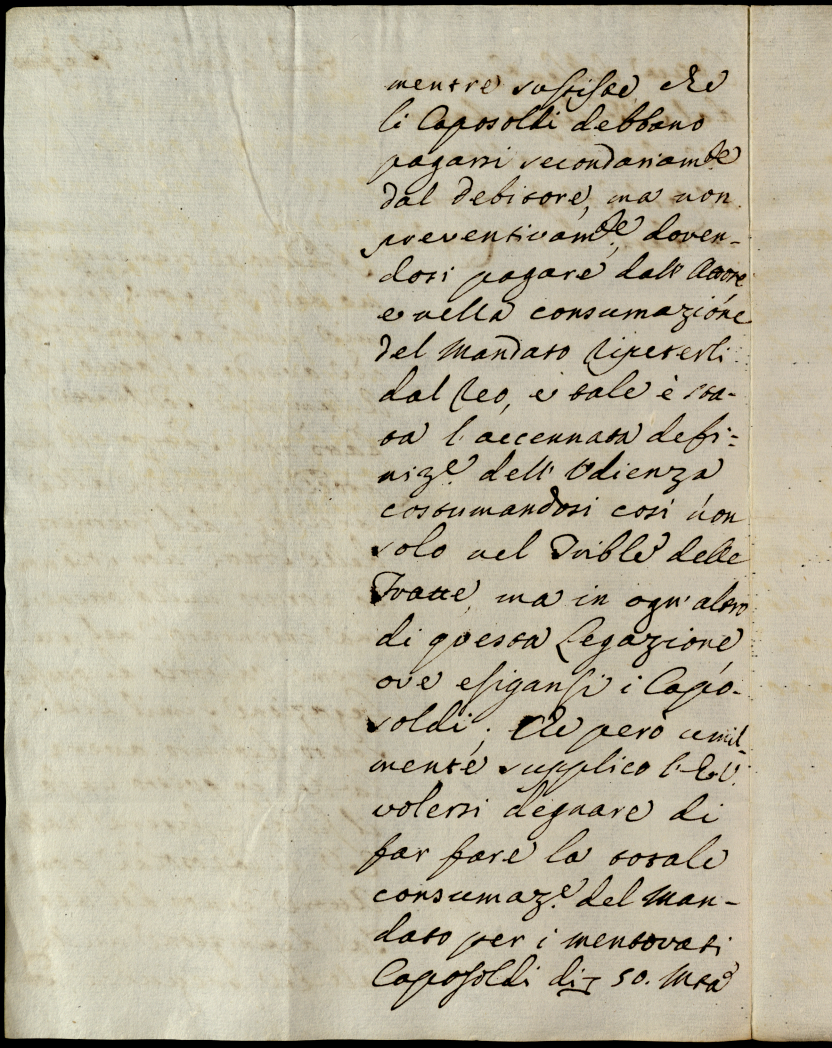 mentre sussiste che
li Caposoldi debbano
pagarsi secondariam.te
dal debitore, ma non
preventivam.te, doven-
dosi pagare dall' Attore
e nella consumazione
del Mandato ripeterli
dal Reo, e tale è sta-
ta l'accennata defi-
niz.e dell' Udienza
costumandosi così non
solo nel Trible delle
Tratte, ma in ogn' altro
di questa Legazione
ove esigansi i Capo-
soldi; Che però umil-
mente supplico l' E. V.
volersi degnare di
far fare la totale
consumaz.e del Man-
dato per i mentovati
Caposoldi di 50. Mta